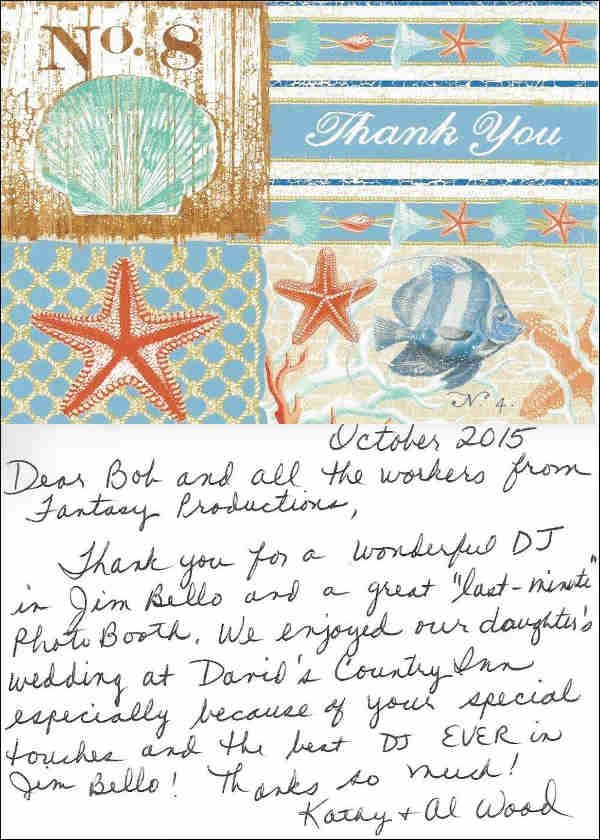 No. 8
Thank You
No. 4.
October 2015
Dear Bob and all the workers from
Fantasy Productions,
Thank you for a wonderful DJ
in Jim Bello and a great "last-minute"
Photo Booth. We enjoyed our daughter's
wedding at David's Country Inn
especially because of your special
touches and the best DJ EVER in
Jim Bello! Thanks so much!
Kathy + Al Wood